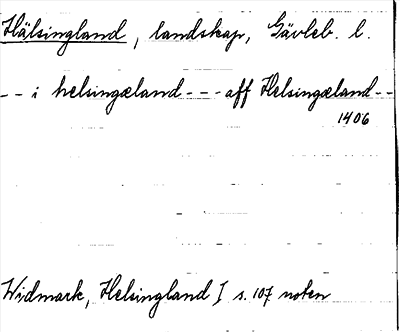 Hälsingland, landskap, Gävleb. l.
-- i helsingæland --- aff Helsingæland --
1406
Widmark, Helsingland I s. 107 noten